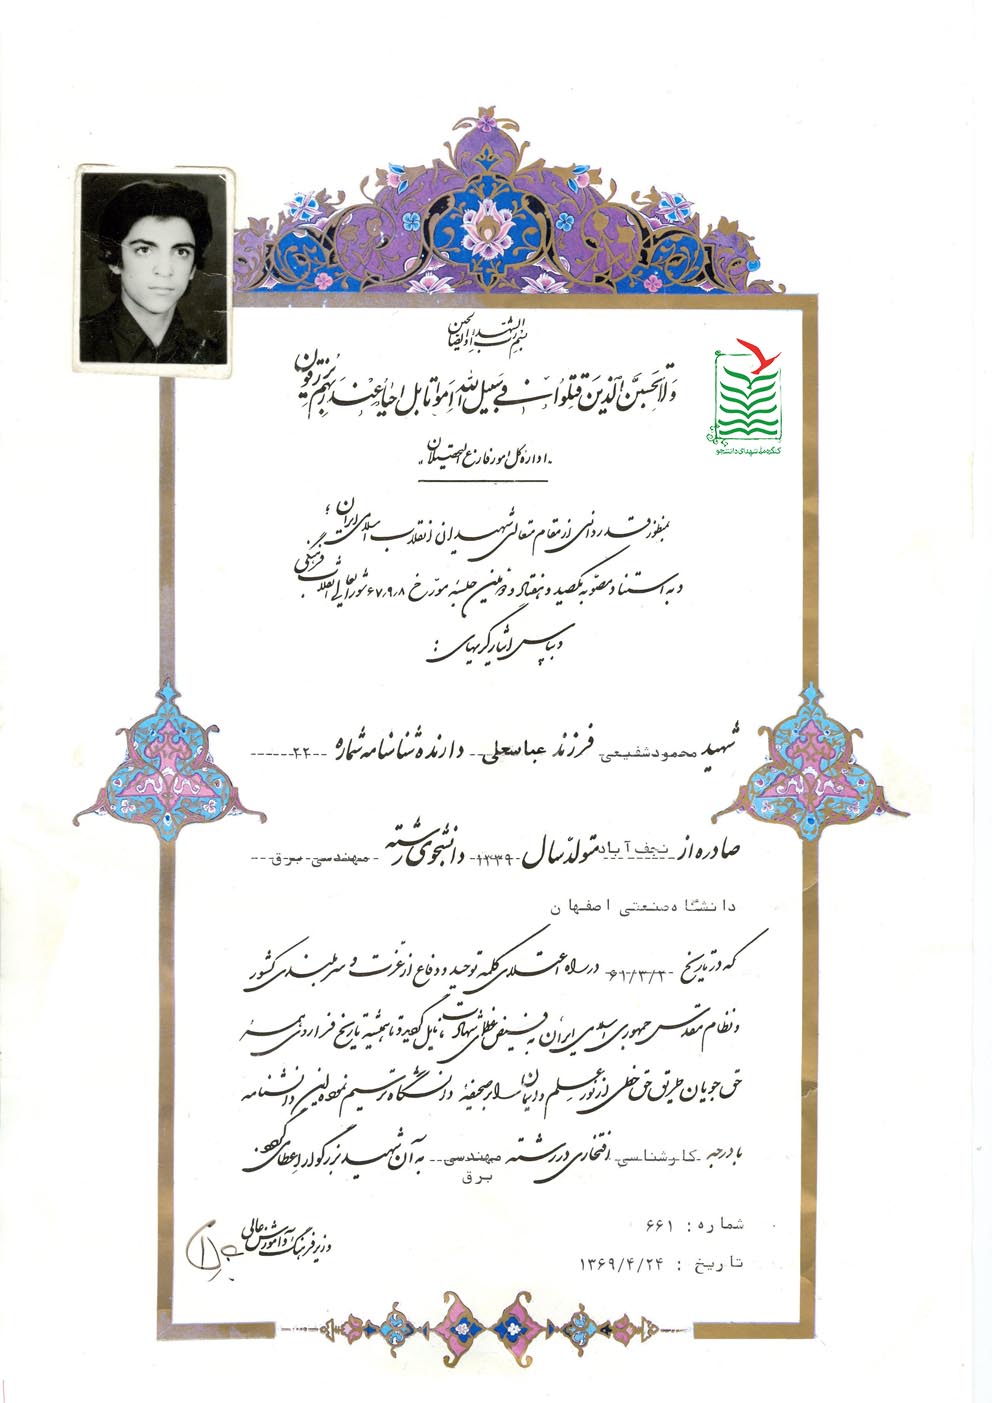 بسم رب الشهداء و الصالحین
ولا تحسبن الذین قتلوا فی سبیل الله امواتا بل احیاء عند ربهم یرزقون
کنگره ملی شهدای دانشجو
«اداره کل امور فارغ التحصیلان»
بمنظور قدردانی از مقام متعالی شهیدان انقلاب اسلامی ایران؛
و به استناد مصوبه یکصد و هفتاد و دومین جلسه مورخ ۶۷٫۹٫۸ شورایعالی انقلاب فرهنگی
و بپاس ایثارگریهای:
شهید محمود شفیعی فرزند عباسعلی دارنده شناسنامه شماره ۲۲
صادره از نجف آباد متولد سال ۱۳۳۹ دانشجوی رشته مهندسی برق
دانشگاه صنعتی اصفهان
که در تاریخ ۶۱/۳/۲۰ در راه اعتلای کلمه توحید و دفاع از عزت و سربلندی کشور
و نظام مقدس جمهوری اسلامی ایران به فیض عظمای شهادت نایل گردید و تا همیشه تاریخ فرا روی همه
حق جویان طریق حق خطی از نور علم و ایمان را بر صحیفه دانشگاه ترسیم نموده این دانشنامه
با درجه کارشناسی افتخاری در رشته مهندسی به آن شهید بزرگوار اعطا میگردد
برق
شماره : ۶۶۱
تاریخ : ۱۳۶۹/۴/۲۴
وزیر فرهنگ و آموزش عالی